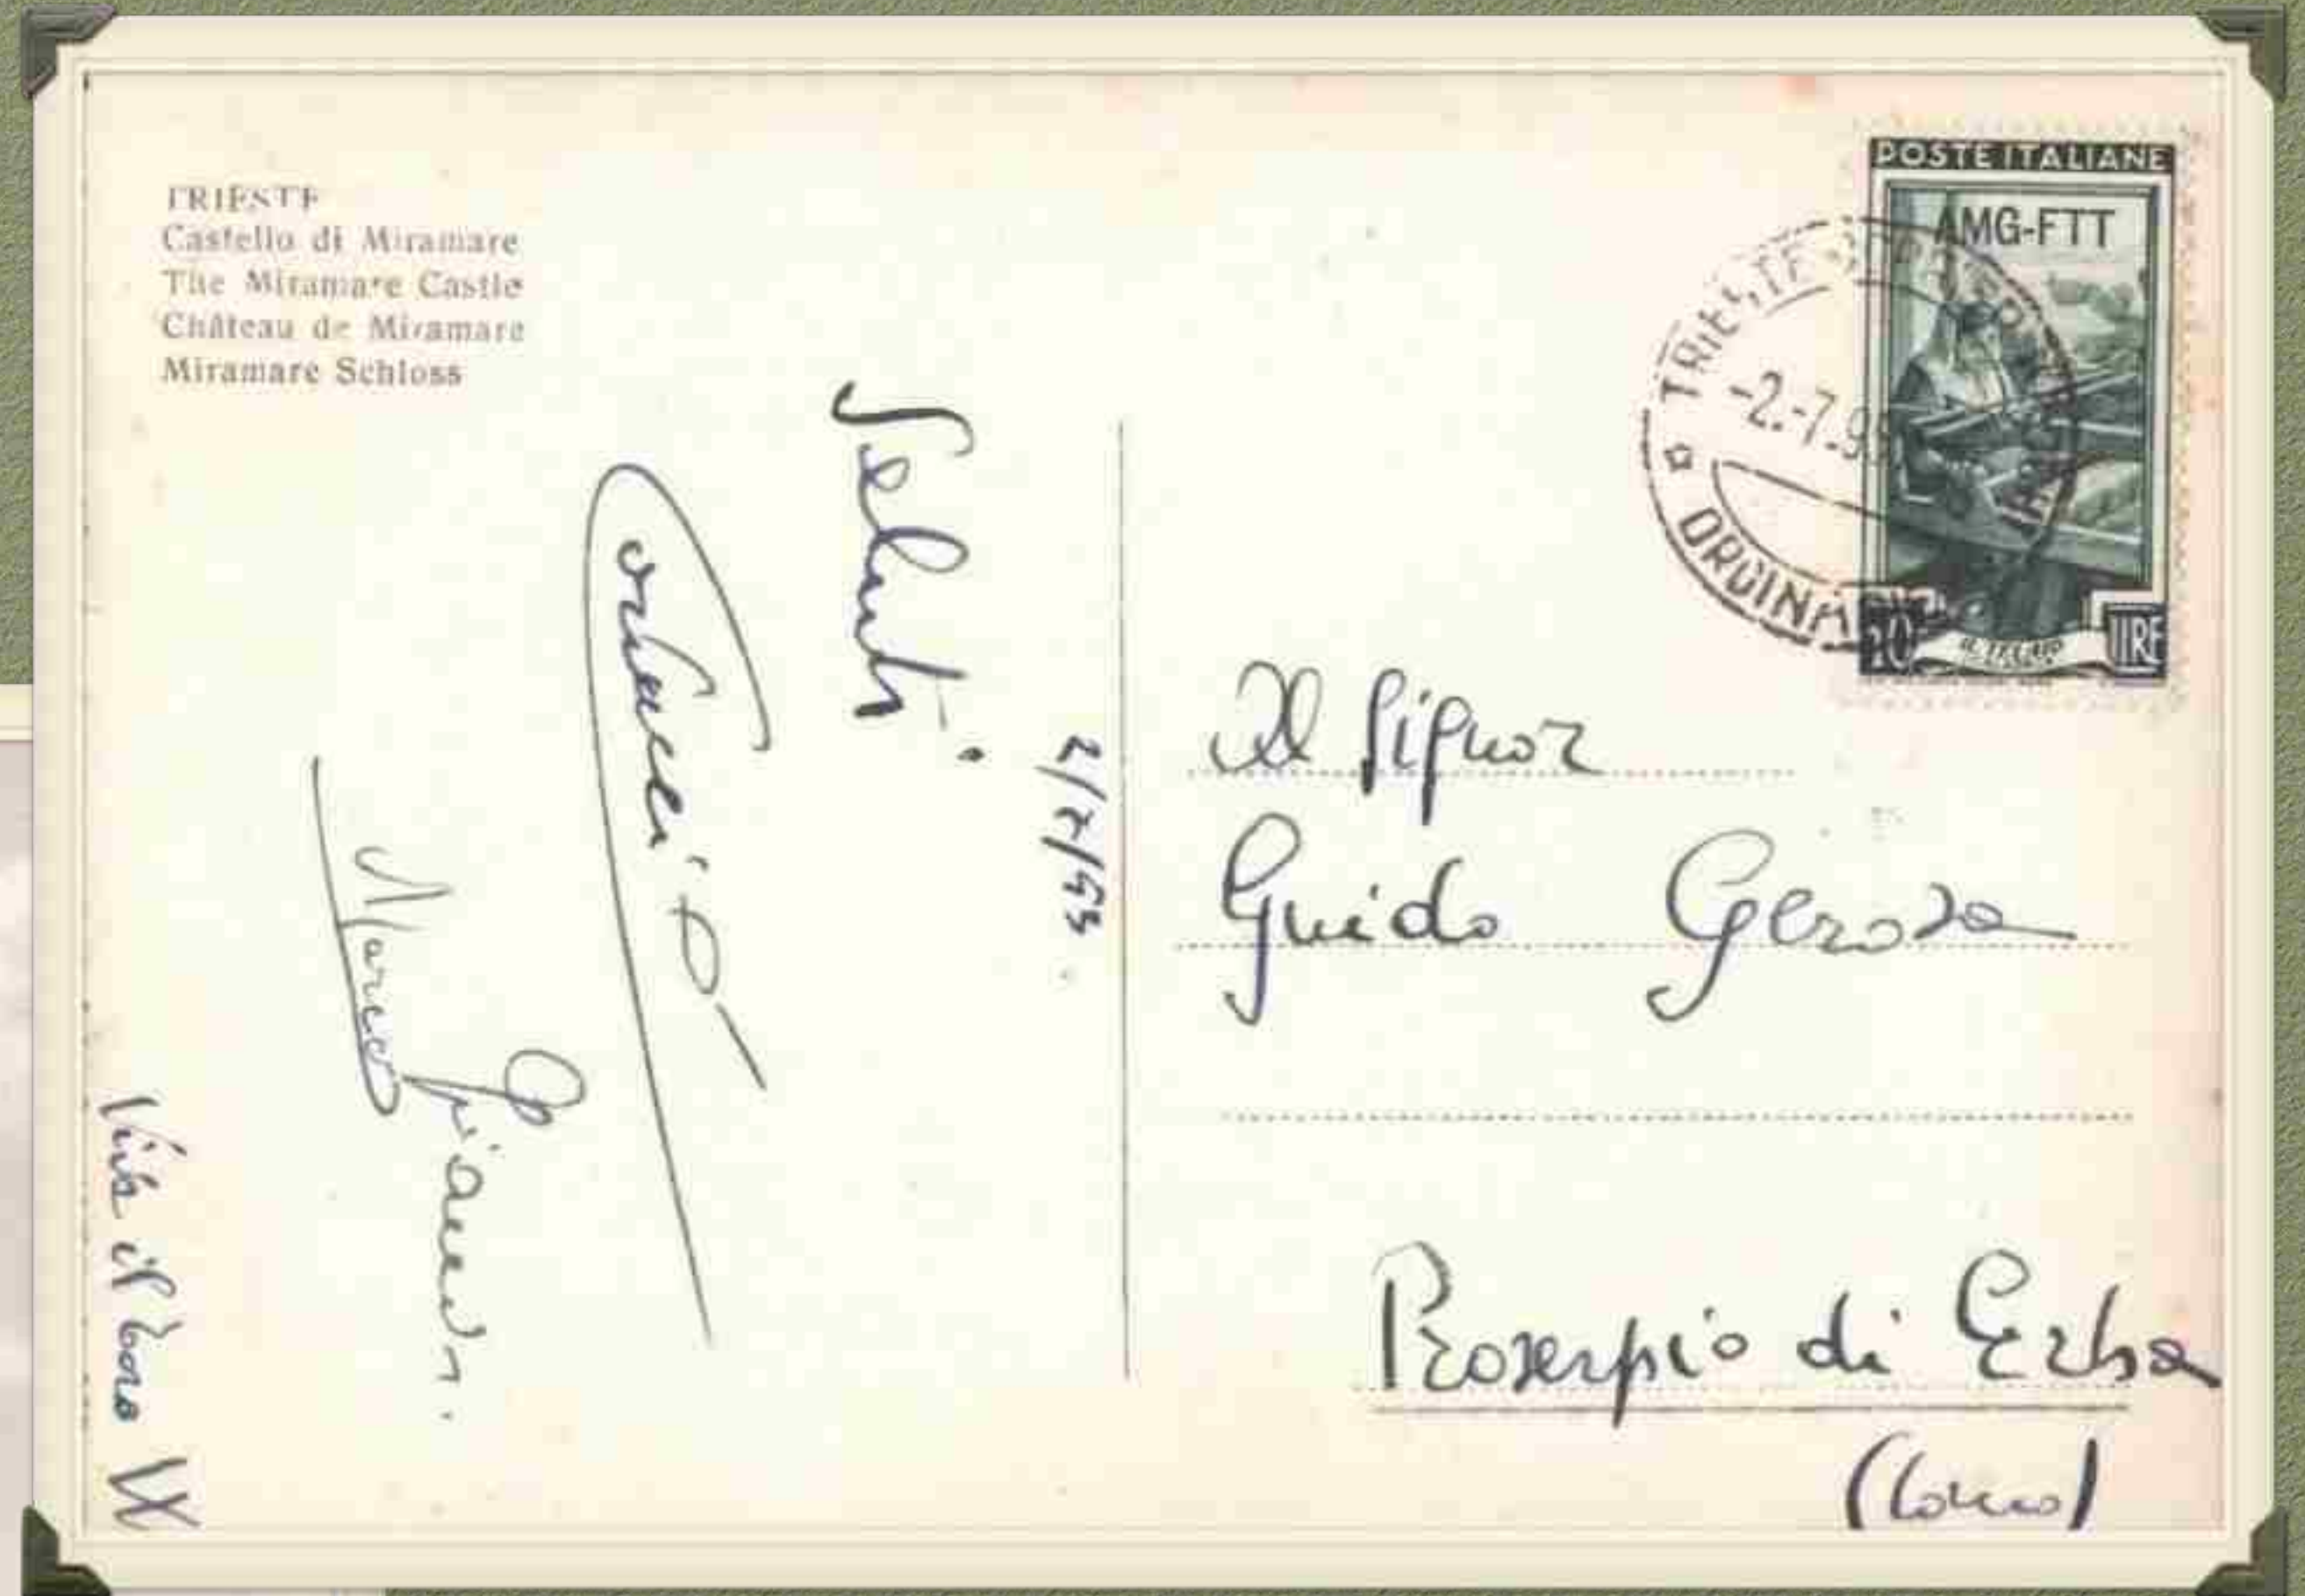 TRIESTE
Castello di Miramare
The Miramare Castle
Château de Miramare
Miramare Schloss
POSTE ITALIANE
AMG-FTT
TRIESTE
-2.-7.9
ORDINA
20 LIRE
2/7/53
Saluti
Marco
Al Signor
Guido Gerosa
Proserpio di Erba
(Como)